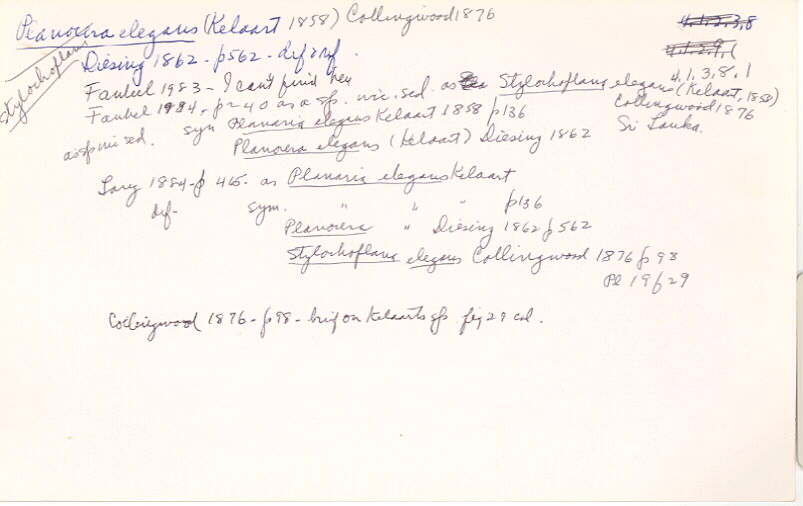 Planocera elegans (Kelaart 1858) Collingwood 1876
4.1.2.3.8
Stylochoplana
Diesing 1862 - p562 - dif & nf.
4.1.2.9.1
Faubel 1983 - I can't find here
4.1.3.8.1
Faubel 1984 - p240 as a sp. inc. sed. as Stylochoplana elegans (Kelaart, 1858) Collingwood 1876
Sri Lanka.
as sp inc sed. syn Planaria elegans Kelaart 1858 p136
Planocera elegans (Kelaart) Diesing 1862
Lang 1884 - p 465 - as Planaria elegans Kelaart
dif - syn. " " " p136
Planocera " Diesing 1862 p562
Stylochoplana elegans Collingwood 1876 p98
Pl 19 f29
Collingwood 1876 - p98 - brief on Kelaarts sp fig 29 col.